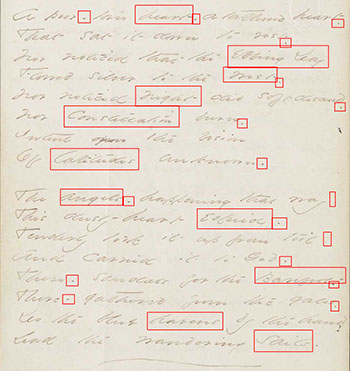 A poor - torn heart - a tattered heart -
That sat it down to rest -
Nor noticed that the Ebbing Day
Flowed silver to the West -
Nor noticed Night did soft descend -
Nor Constellation burn -
Intent upon the vision
Of Latitudes unknown.
The Angels - happening that way
This dusty heart Espied -
Tenderly took it up from toil
And carried it to God -
There - sandals for the Barefoot -
There - gathered from the gales -
Do the blue Havens by the hand
Lead the wandering Sails.